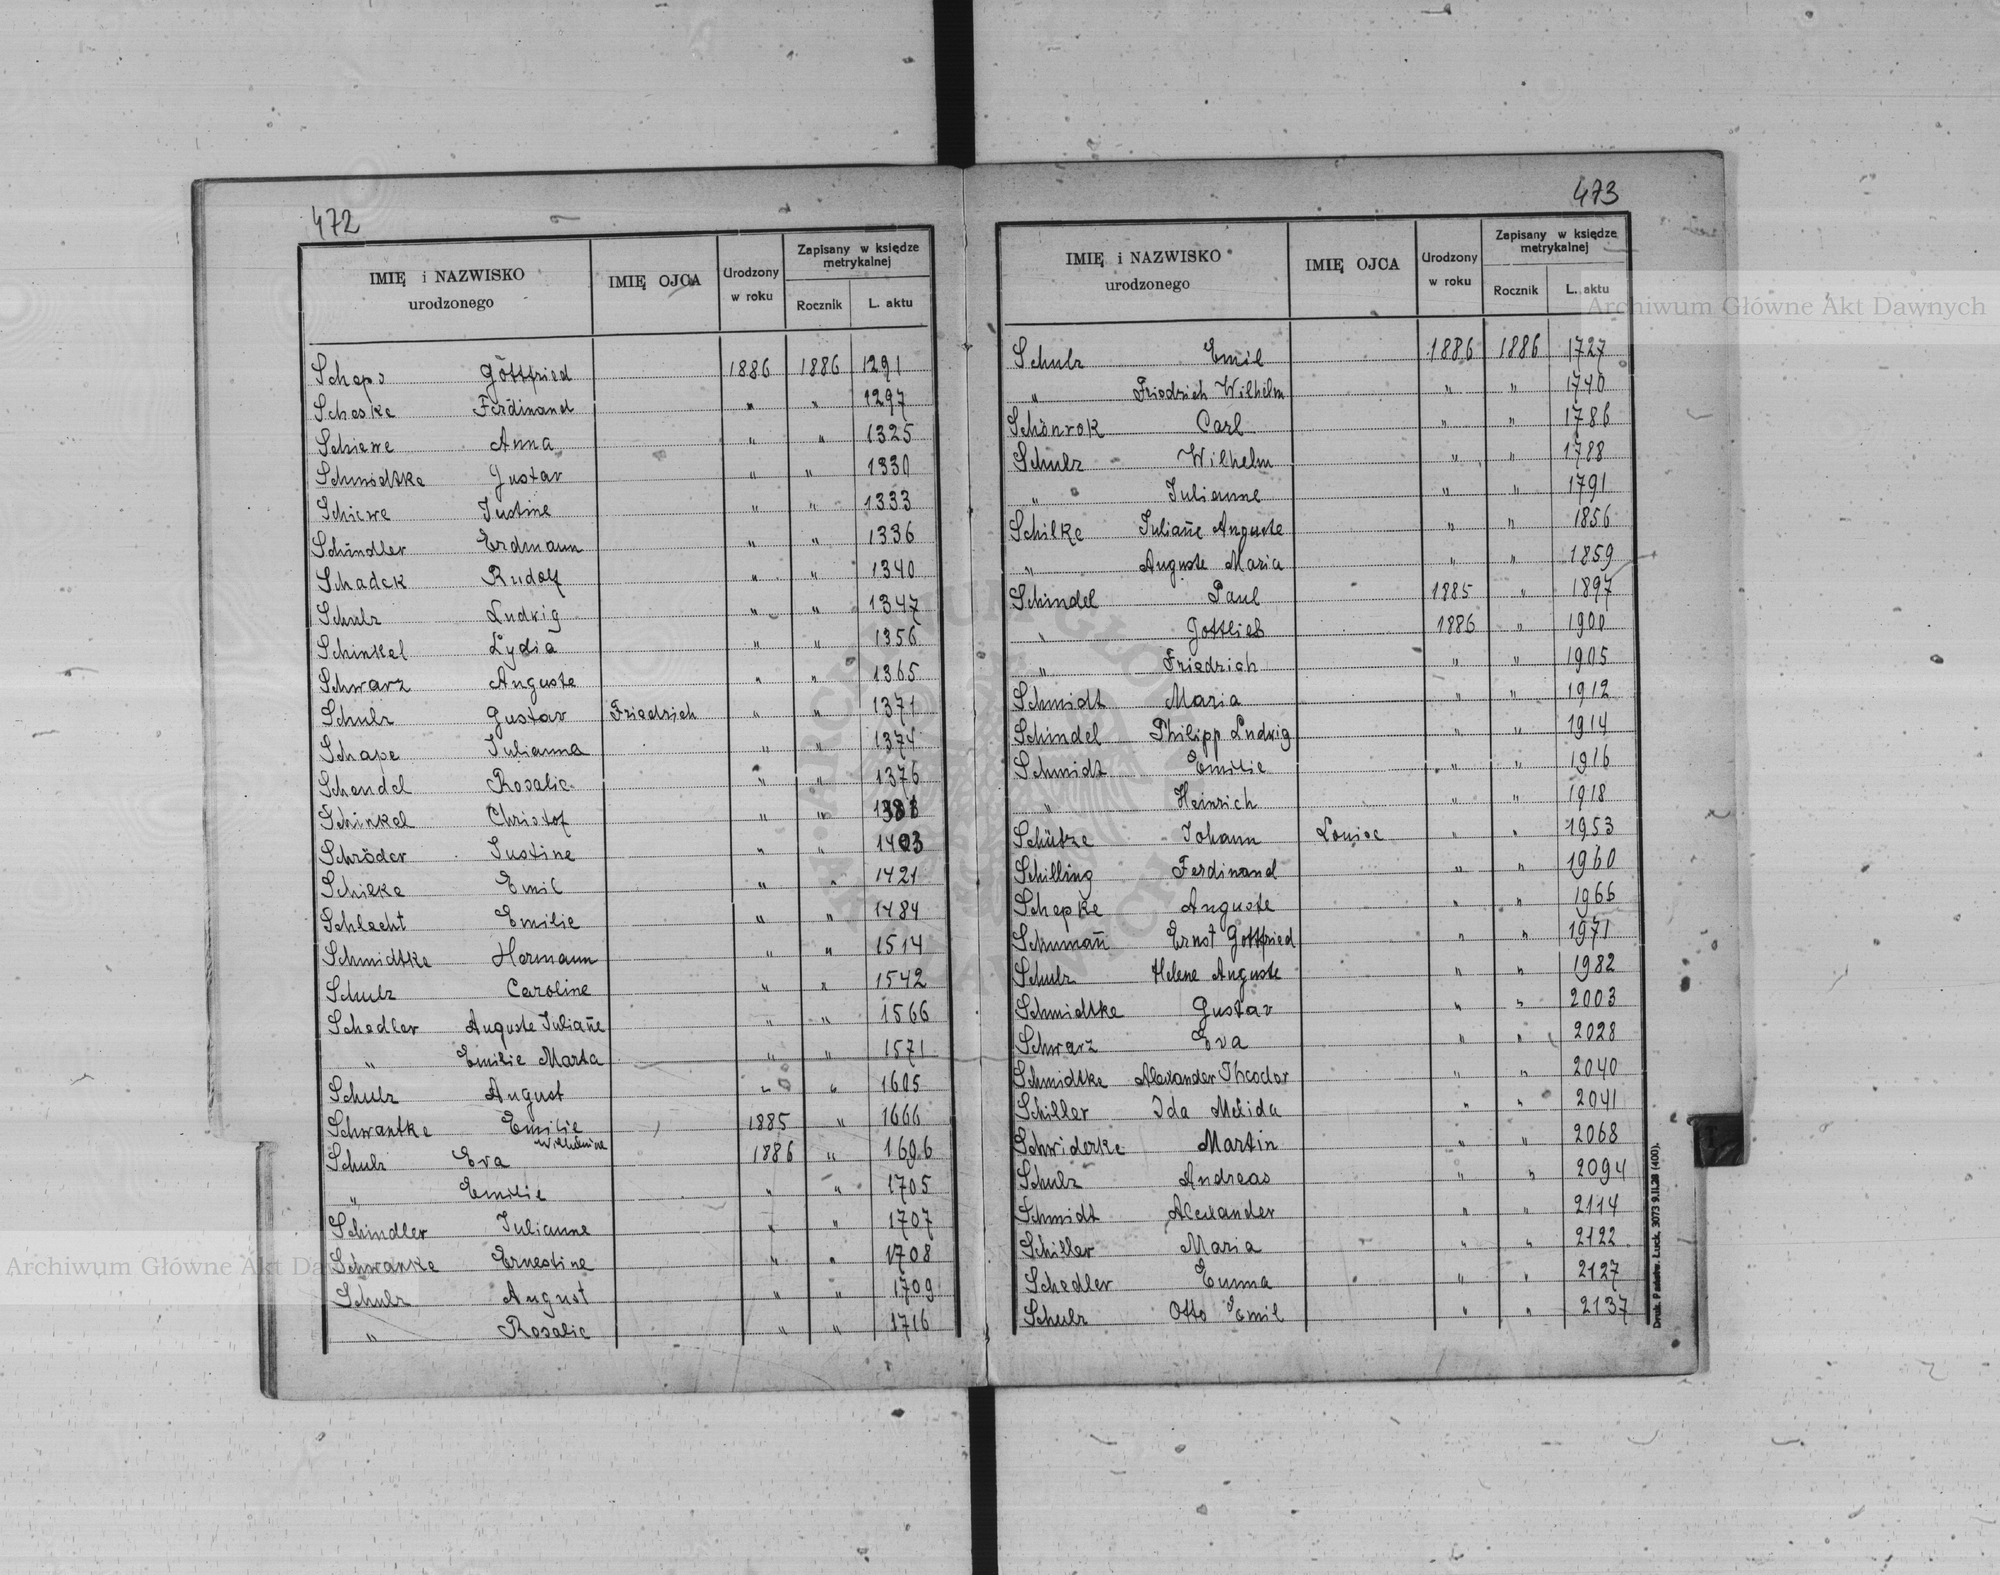 472
IMIĘ i NAZWISKO urodzonego IMIĘ OJCA Urodzony w roku Zapisany w księdze metrykalnej Rocznik L. aktu
Scheps Gottfried 1886 1886 1291
Scheske Ferdinand " " 1297
Schiewe Anna " " 1325
Schmidtke Gustav " " 1330
Schiewe Justine " " 1333
Schindler Erdmann " " 1336
Schadek Rudolf " " 1340
Schulz Ludwig " " 1347
Schinkel Lydia " " 1356
Schwarz Auguste " " 1365
Schulz Gustav Friedrich " " 1371
Schape Julianna " " 1374
Schendel Rosalie " " 1376
Schinkel Christof " "
Schröder Justine " " 1403
Schilke Emil " " 1421
Schlecht Emilie " " 1484
Schmidtke Hermann " " 1514
Schulz Caroline " " 1542
Schedler Auguste Juliañe " " 1566
" Emilie Marta " " 1571
Schulz August " " 1605
Schwantke Emilie 1885 " 1666
Schulz Eva Wilhelmine 1886 " 1696
" Emilie " " 1705
Schindler Julianne " " 1707
Schwanke Ernestine " " 1708
Schulz August " " 1709
" Rosalie " " 1716
473
IMIĘ i NAZWISKO urodzonego IMIĘ OJCA Urodzony w roku Zapisany w księdze metrykalnej Rocznik L. aktu
Schulz Emil 1886 1886 1727
" Friedrich Wilhelm " " 1740
Schönrok Carl " " 1786
Schulz Wilhelm " " 1788
" Julianne " " 1791
Schilke Juliañe Auguste " " 1856
" Auguste Maria " " 1859
Schindel Paul 1885 " 1897
" Gottlieb 1886 " 1900
" Friedrich " " 1905
Schmidt Maria " " 1912
Schindel Philipp Ludwig " " 1914
Schmidt Emilie " " 1916
" Heinrich " " 1918
Schütze Johann Louise " " 1953
Schilling Ferdinand " " 1960
Schepke Auguste " " 1966
Schumañ Ernst Gottfried " " 1971
Schulz Helene Auguste " " 1982
Schmidtke Gustav " " 2003
Schwarz Eva " " 2028
Schmidtke Alexander Theodor " " 2040
Schiller Ida Melida " " 2041
Schwiderke Martin " " 2068
Schulz Andreas " " 2094
Schmidt Alexander " " 2114
Schiller Maria " " 2122
Schedler Emma " " 2127
Schulz Otto Emil " " 2137
Archiwum Główne Akt Dawnych
Archiwum Główne Akt Dawnych